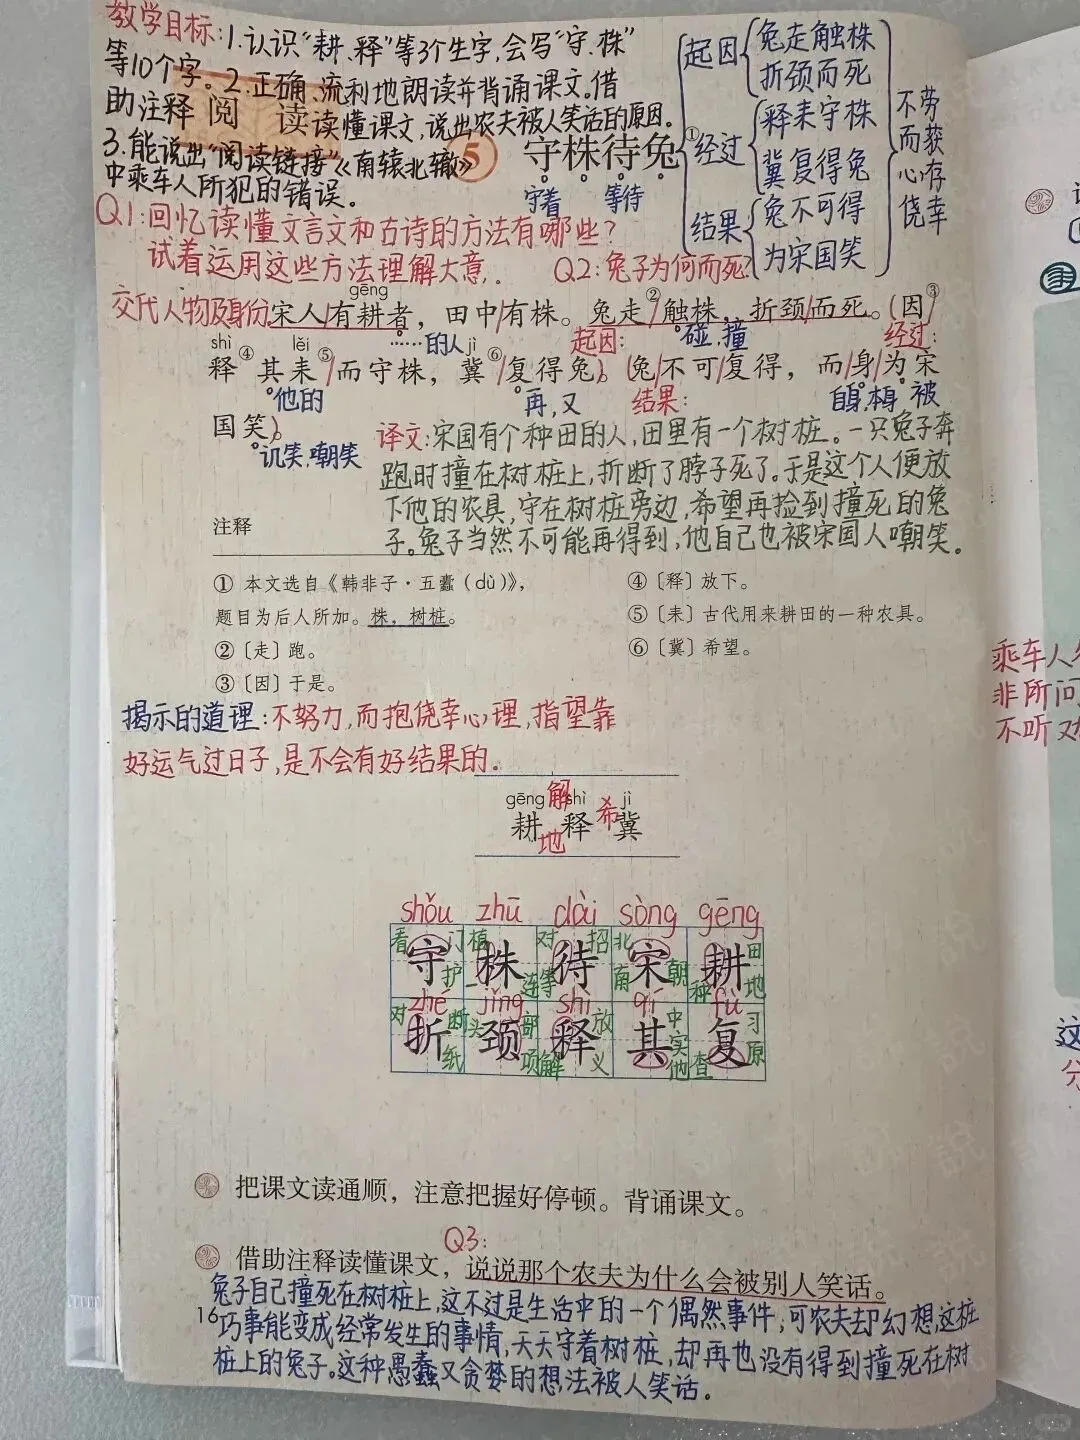 教学目标:1.认识"耕、释"等3个生字,会写"守、株"
等10个字。2.正确、流利地朗读并背诵课文。借
助注释 阅 读 读懂课文,说出农夫被人笑话的原因。
3.能说出"阅读链接"《南辕北辙》
中乘车人所犯的错误。
5 守株待兔①
守着 等待
起因 兔走触株
折颈而死
经过 释耒守株
冀复得兔
结果 兔不可得
为宋国笑
不劳
而获
心存
侥幸
Q1:回忆读懂文言文和古诗的方法有哪些?
试着运用这些方法理解大意. Q2:兔子为何而死?
gēng
交代人物及身份.宋人/有耕者,田中/有株。兔走②/触株,折颈/而死。(因③/
……的人 起因: 碰,撞 经过:
shì lěi jì
释④其耒⑤/而守株,冀⑥/复得兔)。(兔/不可/复得,而/身/为宋
他的 再,又 结果: 自身,本身 被
国笑)。
讥笑,嘲笑
译文:宋国有个种田的人,田里有一个树桩。一只兔子奔
跑时撞在树桩上,折断了脖子死了。于是这个人便放
下他的农具,守在树桩旁边,希望再捡到撞死的兔
子。兔子当然不可能再得到,他自己也被宋国人嘲笑。
注释
① 本文选自《韩非子·五蠹(dù)》,
题目为后人所加。株,树桩。
②〔走〕跑。
③〔因〕于是。
④〔释〕放下。
⑤〔耒〕古代用来耕田的一种农具。
⑥〔冀〕希望。
揭示的道理:不努力,而抱侥幸心理,指望靠
好运气过日子,是不会有好结果的.
gēng shì jì
耕 释 冀
地 解 希
shǒu zhū dài sòng gēng
守 株 待 宋 耕
看 门 护 植 连 对 招 等 北 南 朝 田 地 种
zhé jǐng shì qí fù
折 颈 释 其 复
对 断 纸 头 部 项 放 义 解 中 实 他 习 原 查
把课文读通顺,注意把握好停顿。背诵课文。
Q3:
借助注释读懂课文,说说那个农夫为什么会被别人笑话。
兔子自己撞死在树桩上,这不过是生活中的一个偶然事件,可农夫却幻想,这桩
16
巧事能变成经常发生的事情,天天守着树桩,却再也没有得到撞死在树
桩上的兔子。这种愚蠢又贪婪的想法被人笑话。
乘车人
非所问
不听对
这
分